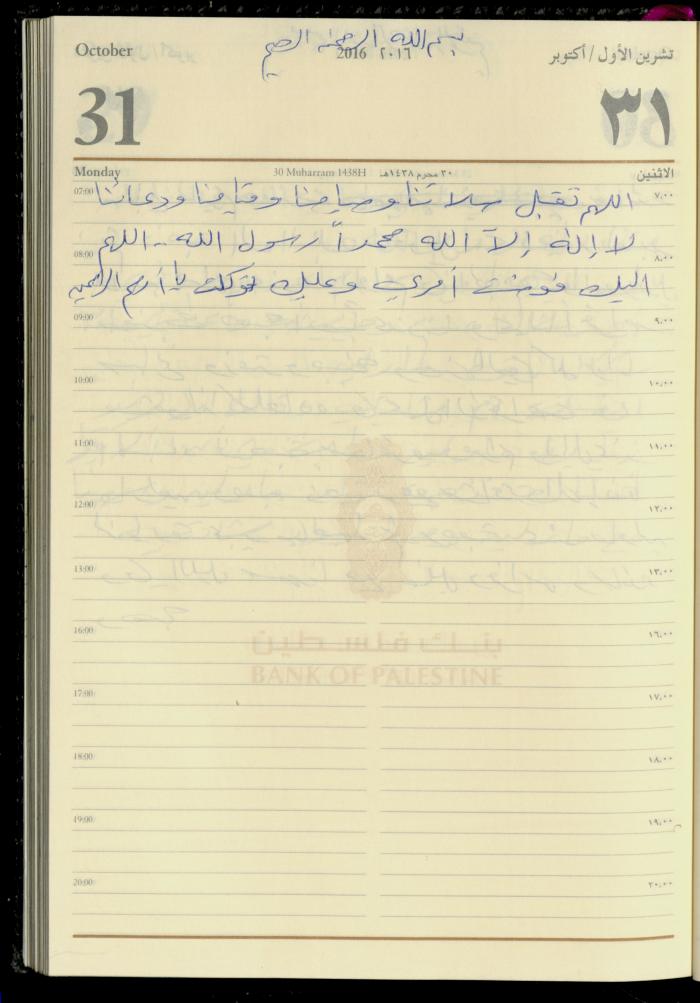 بسم الله الرحمن الرحيم
October 2016 ٢٠١٦ تشرين الأول / أكتوبر
31 ٣١
Monday 30 Muharram 1438H ٣٠ محرم ١٤٣٨هـ الاثنين
07:00 اللهم تقبل سلاتنا وصيامنا وقيامنا ودعائنا ٧,٠٠
لا إله إلا الله محمداً رسول الله - اللهم
08:00 ٨,٠٠
اليك فوضت أمري وعليك توكلت يا أرحم الراحمين
09:00 ٩,٠٠
10:00 ١٠,٠٠
11:00 ١١,٠٠
12:00 ١٢,٠٠
13:00 ١٣,٠٠
16:00 ١٦,٠٠
بنك فلسطين
BANK OF PALESTINE
17:00 ١٧,٠٠
18:00 ١٨,٠٠
19:00 ١٩,٠٠
20:00 ٢٠,٠٠